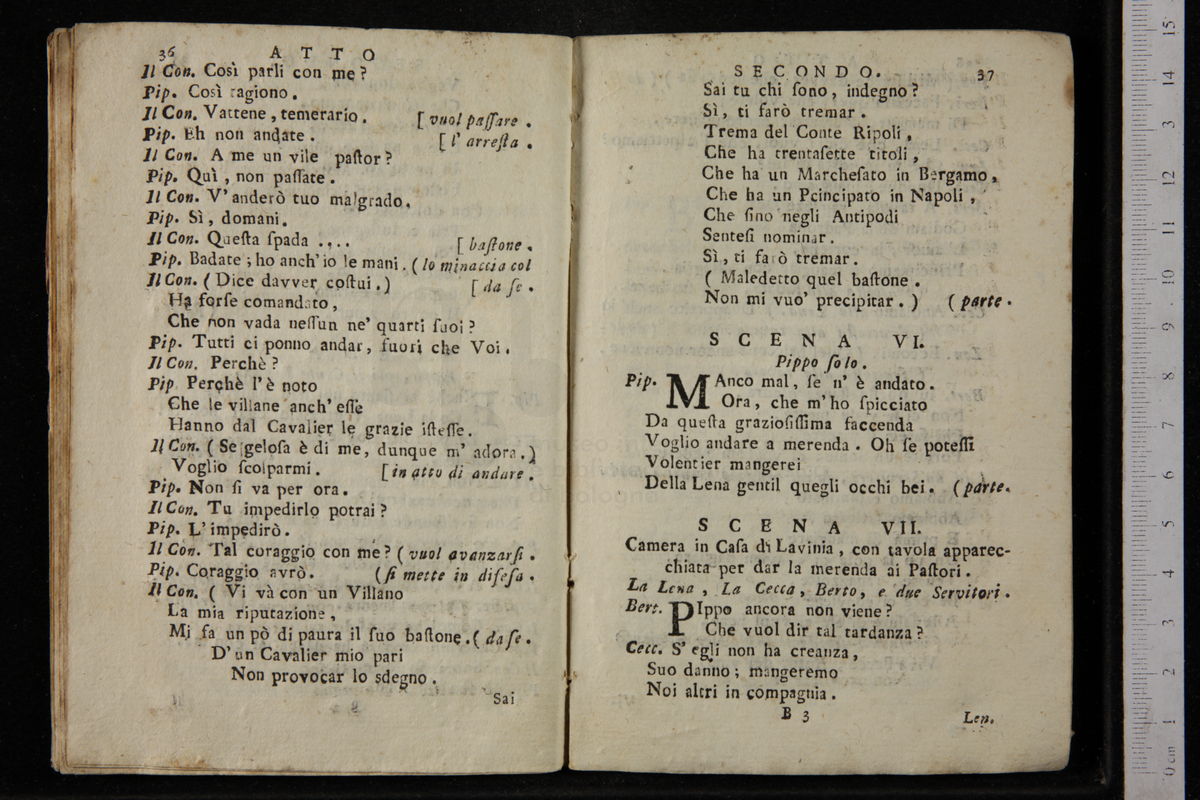 36 ATTO
Il Con. Così parli con me?
Pip. Così ragiono.
Il Con. Vattene, temerario. [vuol paſſare.
Pip. Eh non andate. [l'arreſta.
Il Con. A me un vile paſtor?
Pip. Quì, non paſſate.
Il Con. V'anderò tuo malgrado.
Pip. Sì, domani.
Il Con. Queſta ſpada .... [baſtone.
Pip. Badate; ho anch'io le mani. (lo minaccia col
Il Con. (Dice davver coſtui.) [da ſe.
Ha forſe comandato,
Che non vada neſſun ne' quarti ſuoi?
Pip. Tutti ci ponno andar, fuori che Voi.
Il Con. Perchè?
Pip Perchè l'è noto
Che le villane anch'eſſe
Hanno dal Cavalier le grazie iſteſſe.
Il Con. (Se geloſa è di me, dunque m'adora.)
Voglio ſcolparmi. [in atto di andare.
Pip. Non ſi va per ora.
Il Con. Tu impedirlo potrai?
Pip. L'impedirò.
Il Con. Tal coraggio con me? (vuol avanzarſi.
Pip. Coraggio avrò. (ſi mette in difeſa.
Il Con. (Vi và con un Villano
La mia riputazione,
Mi fa un pò di paura il ſuo baſtone. (da ſe.
D'un Cavalier mio pari
Non provocar lo sdegno.
Sai
SECONDO. 37
Sai tu chi ſono, indegno?
Sì, ti farò tremar.
Trema del Conte Ripoli,
Che ha trentaſette titoli,
Che ha un Marcheſato in Bergamo,
Che ha un Pcincipato in Napoli,
Che ſino negli Antipodi
Senteſi nominar.
Sì, ti farò tremar.
(Maledetto quel baſtone.
Non mi vuo' precipitar.) (parte.
SCENA VI.
Pippo ſolo.
Pip. MAnco mal, ſe n'è andato.
Ora, che m'ho ſpicciato
Da queſta grazioſiſſima faccenda
Voglio andare a merenda. Oh ſe poteſſi
Volentier mangerei
Della Lena gentil quegli occhi bei. (parte.
SCENA VII.
Camera in Caſa di Lavinia, con tavola apparec-
chiata per dar la merenda ai Paſtori.
La Lena, La Cecca, Berto, e due Servitori.
Bert. PIppo ancora non viene?
Che vuol dir tal tardanza?
Cecc. S'egli non ha creanza,
Suo danno; mangeremo
Noi altri in compagnia.
B 3 Len.